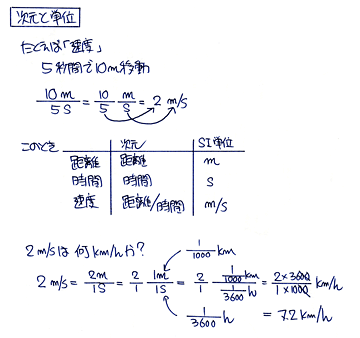 次元と単位
たとえば「速度」
5秒間で10m移動
10m/5s = 10/5 m/s = 2 m/s
このとき 次元 SI単位
距離 距離 m
時間 時間 s
速度 距離/時間 m/s
2m/sは何km/hか?
1/1000 km
2m/s = 2m/1s = 2/1 1m/1s = 2/1 (1/1000 km)/(1/3600 h) = (2×3600)/(1×1000) km/h
1/3600 h = 7.2 km/h